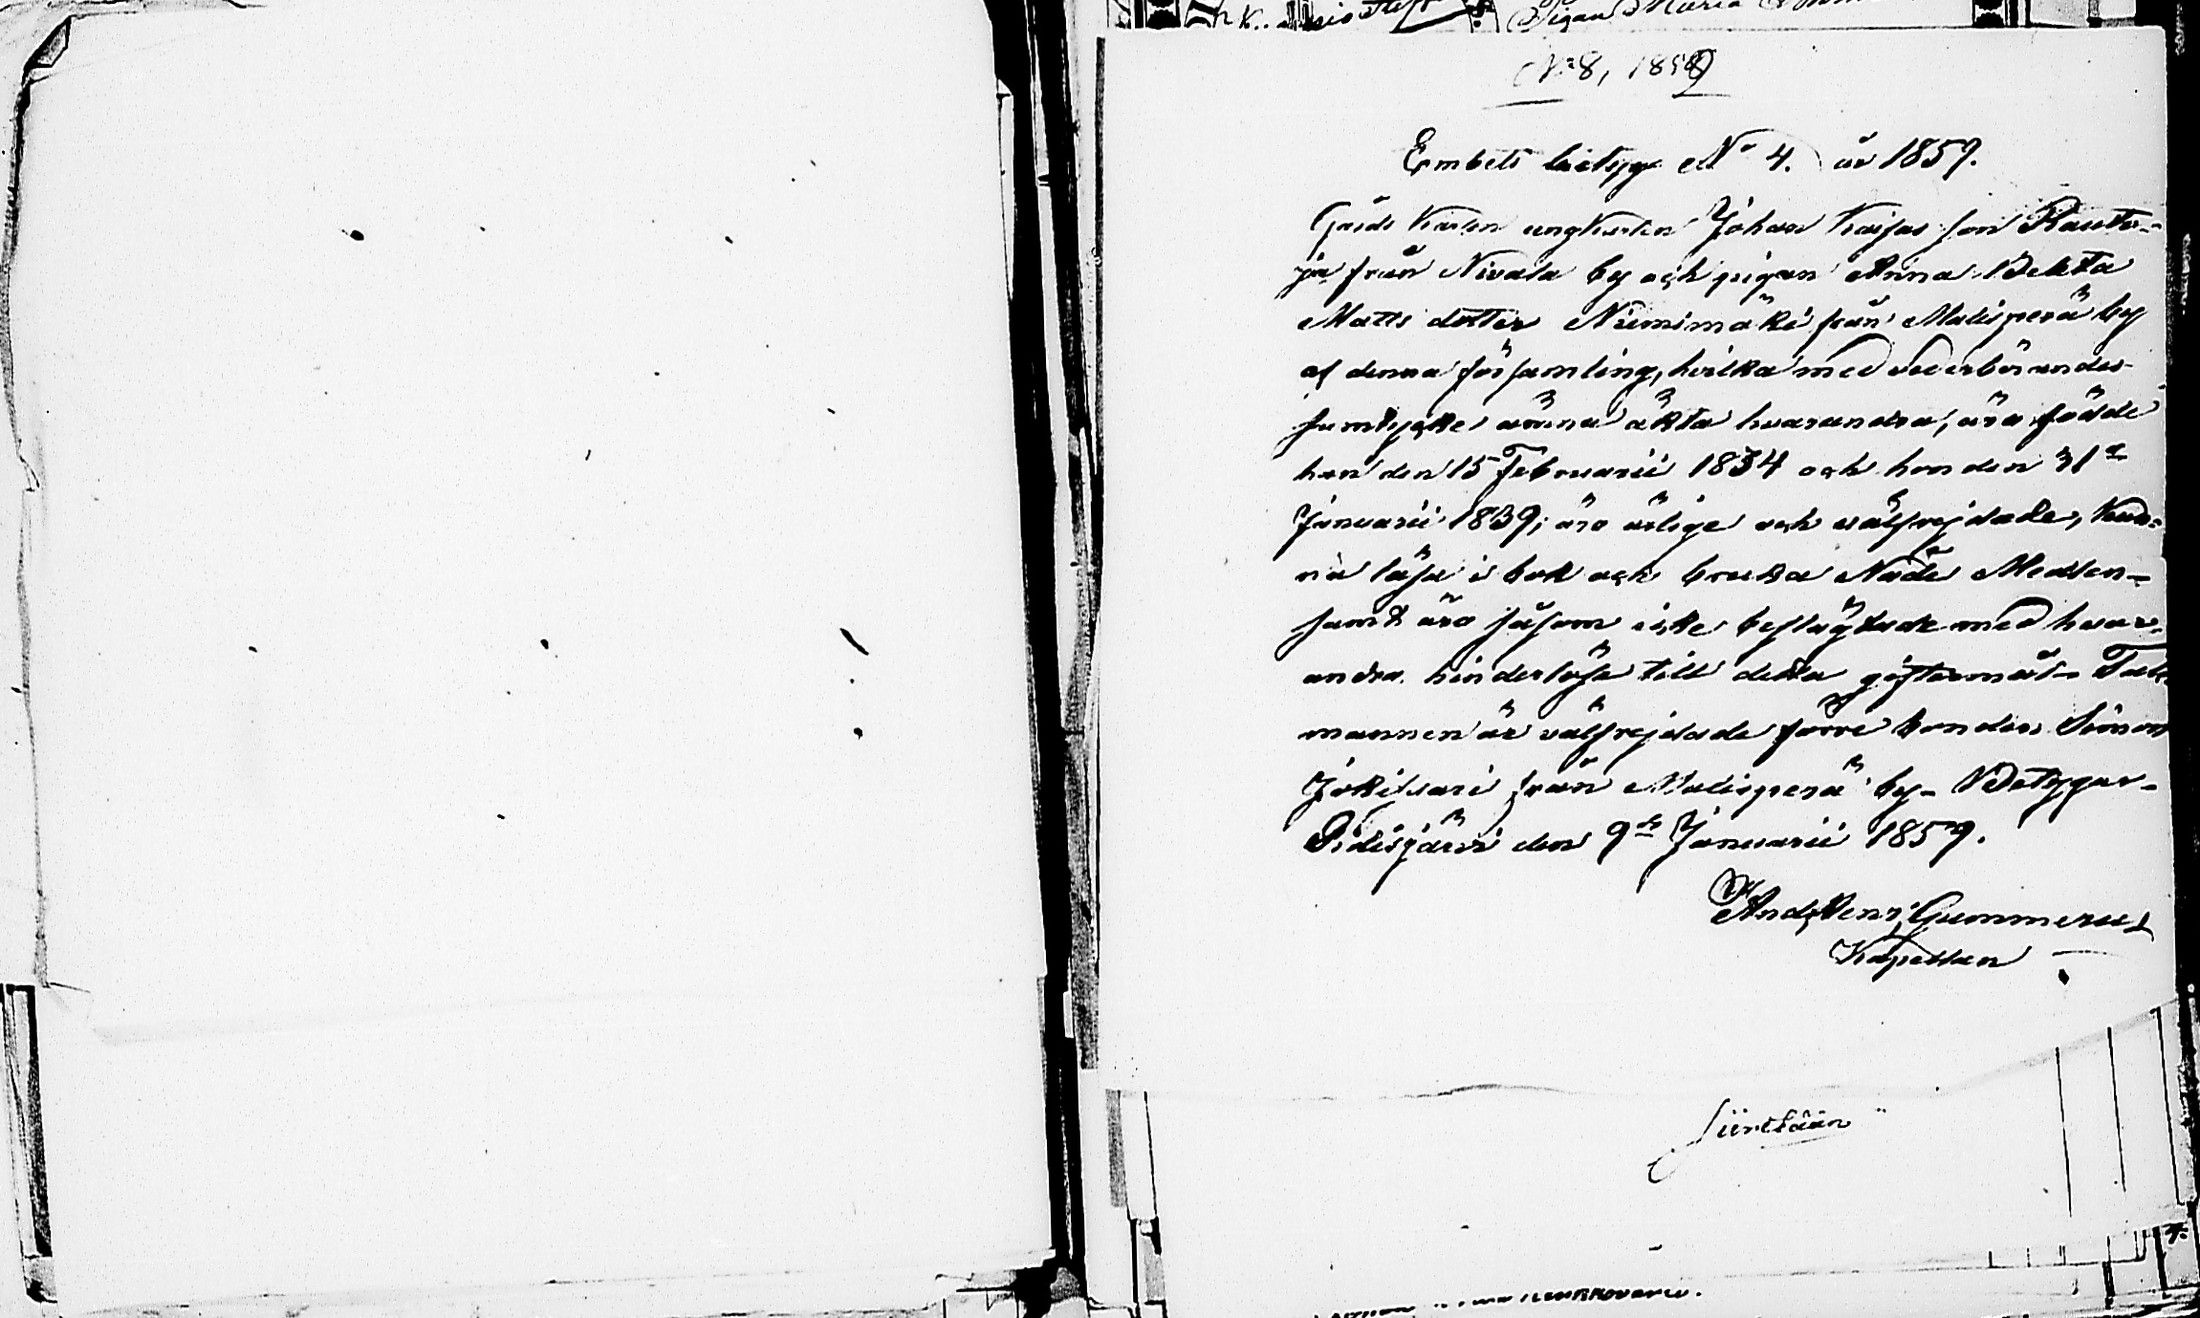 Pigan Maria
N:o 8, 1859
Embets betyg N:o 4. år 1859.
Gårds Karlen ungkarlen Johan Kaijas son Rauta-
ja från Nivala by och pigan Anna Brita
Matts dotter Niemimäki från Malisperä by
af denna församling, hvilka med vederbörandes
samtycke ärna äkta hvarandra, äro födde
han den 15 Februarii 1834 och hon den 31:e
Januarii 1839; äro ärlige och välfrejdade, kun-
na läsa i bok och bruka Nåde Medlen-
samt äro såsom icke beslägtade med hvar-
andra hinderlösa till detta giftermål- Tals
mannen är välfrejdade förre bonden Simon
Jokisaari från Malisperä by- Betygar-
Pidisjärvi den 9:de Januarii 1859.
And. Henr. Gummerus
Kapellan
Siirtään